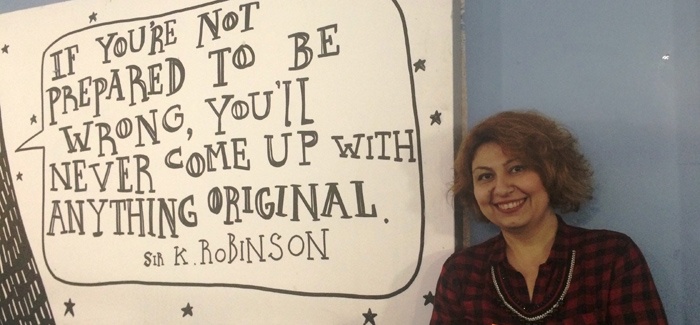 IF YOU'RE NOT
PREPARED TO BE
WRONG, YOU'll
NEVER COME UP WITH
ANYTHING ORIGINAL.
SIR K. ROBINSON